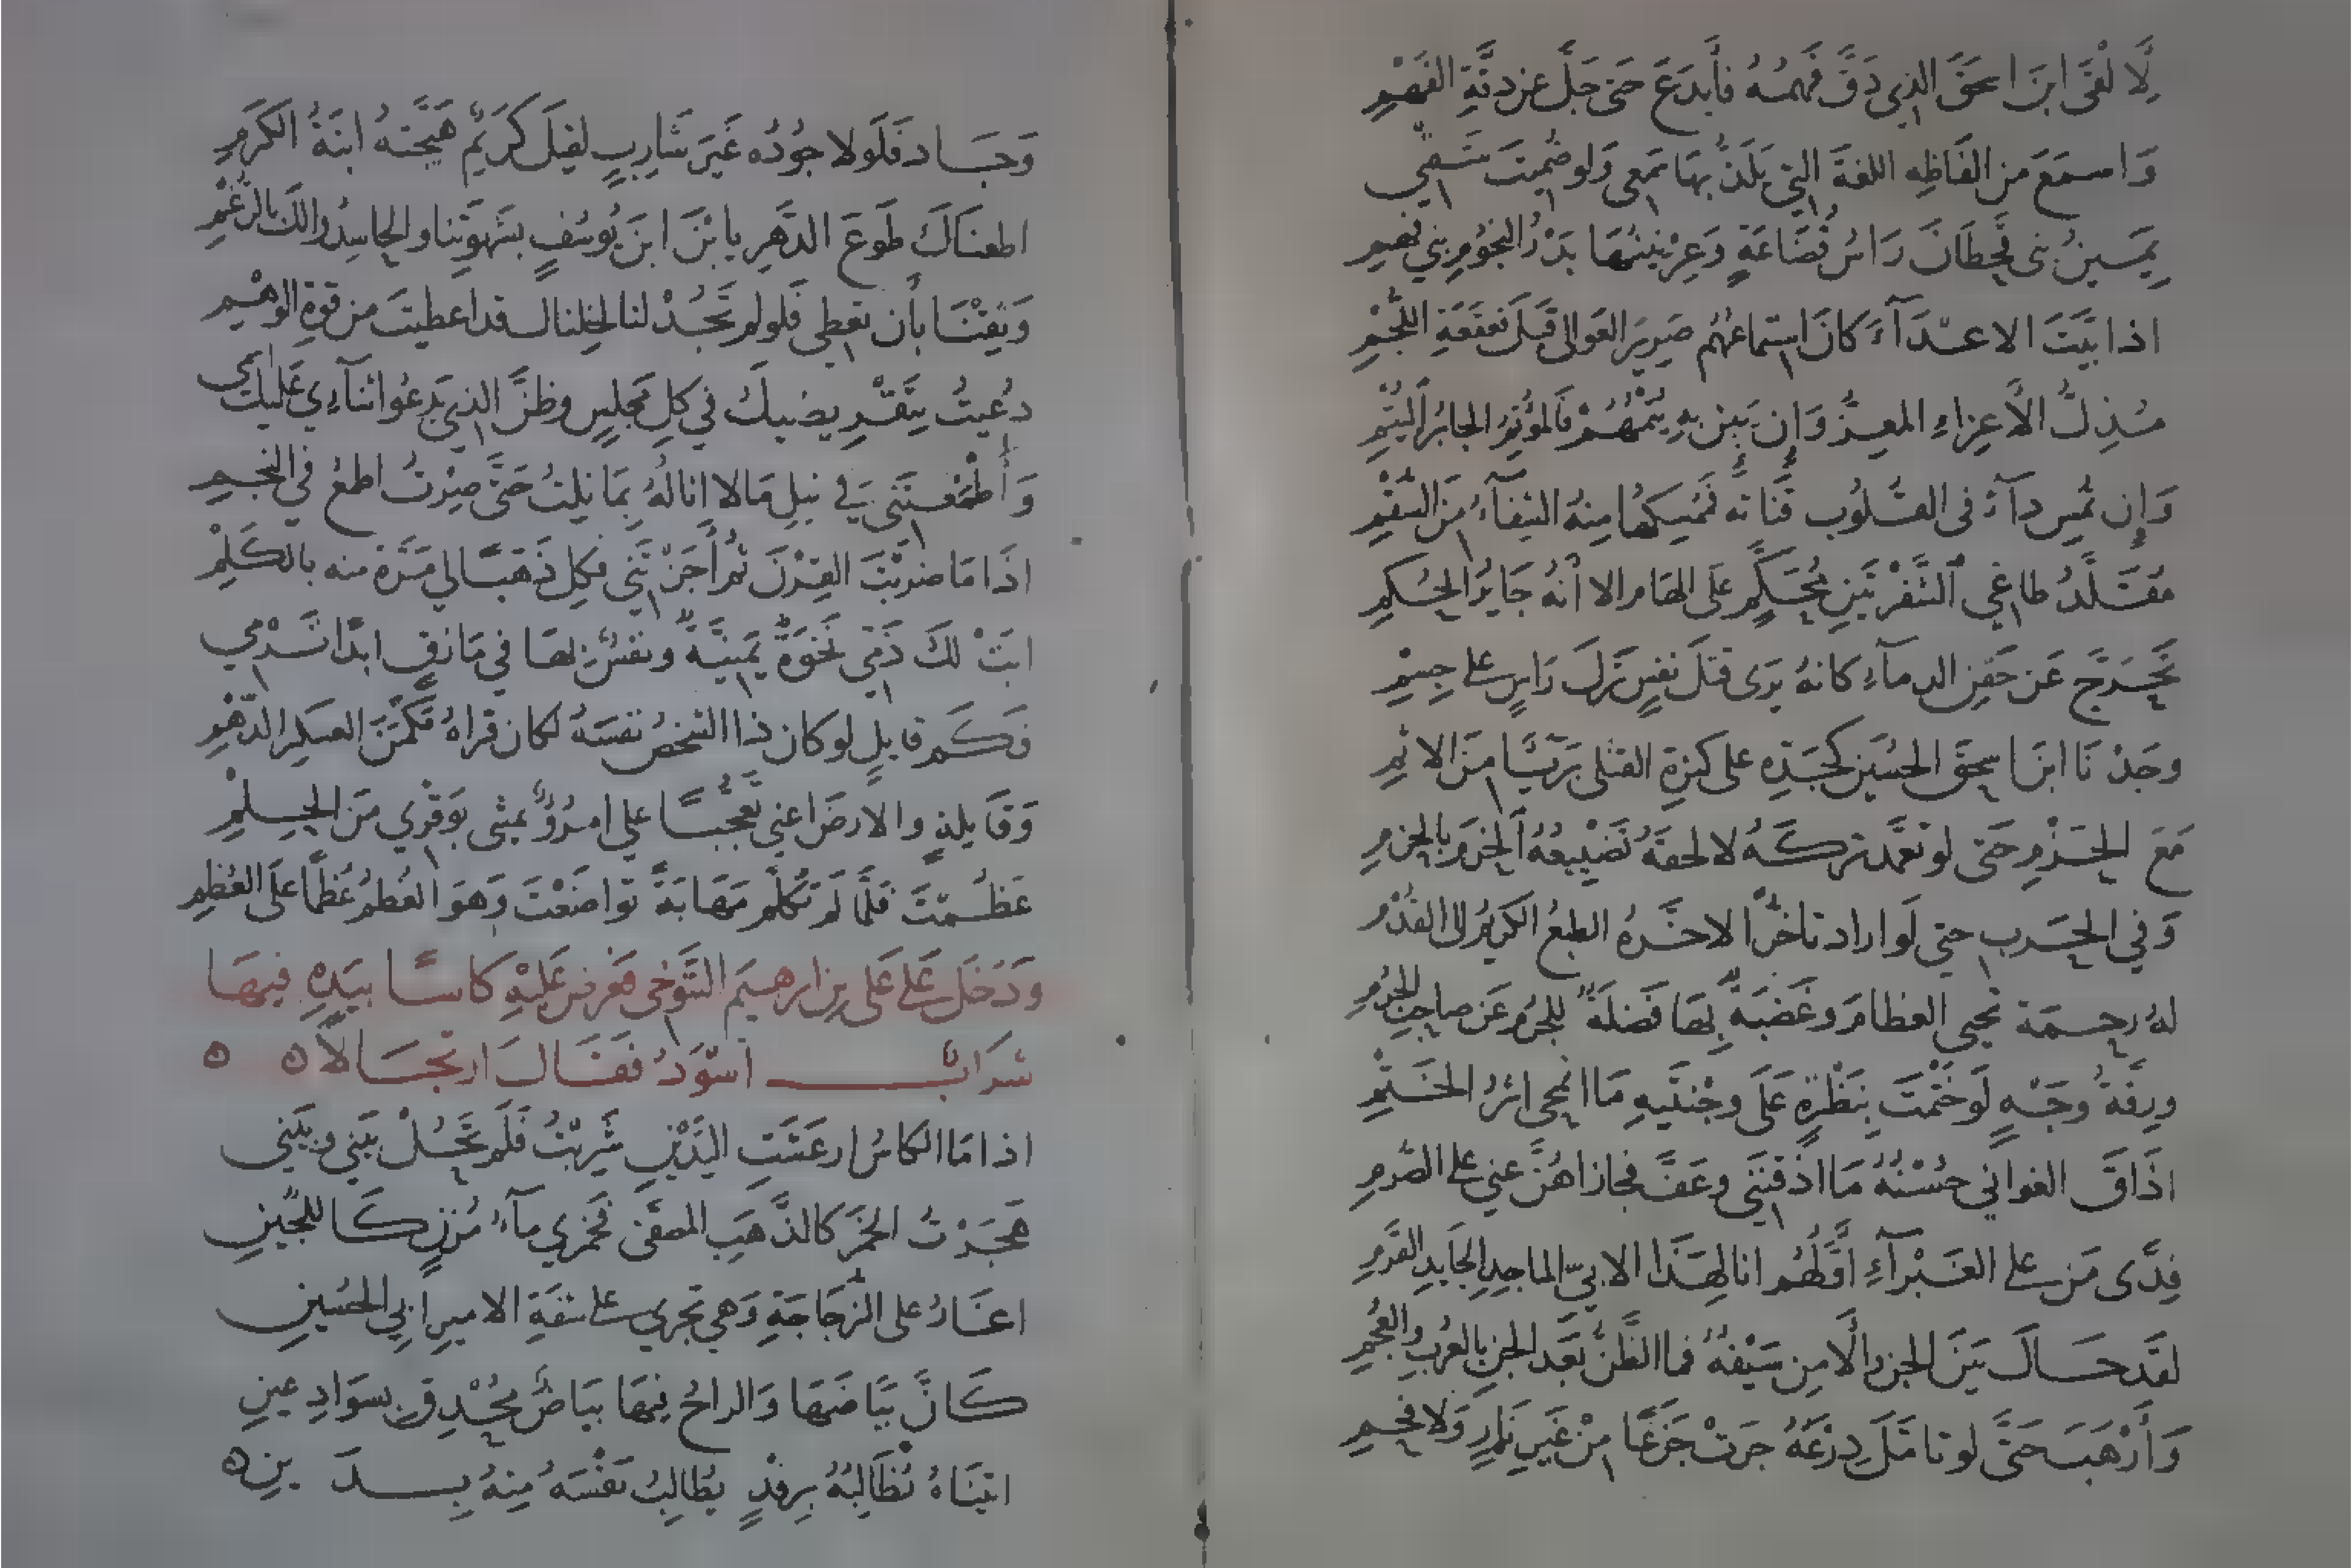 لِأَلْقَى ابنَ اسحَقَ الذِي دَقَّ فَهمُهُ فأَبدَعَ حَتى جَلَّ عن دقَّةِ الفَهْمِ
وَاسمَعَ من الفَاظِهِ اللغةَ التِي يَلَذُّ بهَا سَمعِي وَلو ضُمِنتَ شَتمِي
يَمِينُ بنى قَحطَانَ رَاسُ قُضَاعَةٍ وَعِرْنِينُهَا بَدْرُ النجُومِ بني فَهمِ
اذا بَيَّتَ الاعدَآءَ كانَ استِماعُهُم صَرِيرَ العَوالى قبلَ قعقَعَةِ اللُّجْمِ
مُذِلُّ الأَعِزاءِ المعِزُّ وَإن يَئِن بهِ يُتْمُهُمْ فَالمُوتِمُ الجابرُ اليُتْمِ
وَإِن تُمسِ دآءً فى القُلُوبِ قَناتُه فمُمسِكُها مِنهُ الشِفآءُ مَنَ السُّقْمِ
مُقَلَّدُ طاغِي الشَّفْرَتَينِ مُحَكَّمٍ عَلَى الهَامِ الا أَنهُ جَايرُ الحُكمِ
تَحَرَّجَ عَن حَقنِ الدِمآءِ كانهُ يَرَى قتلَ نفسٍ تَركَ رَاسٍ على جِسمِ
وجَدْنَا ابنَ اسحقَ الحُسَينِ كجَدِّهِ على كثرةِ القتلى بَريًّا مِنَ الاثمِ
مَعَ الحَزْمِ حَتى لو تعَمَّدَ تركَهُ لالحقَهُ تَضْيِيعُهُ الحَزمَ بالحَزمِ
وَفي الحَربِ حتي لَو اراد تاخّرًا لاخَّرهُ الطبعُ الكرِيمُ الى القُدْمِ
لهُ رحمَة تحيي العظامَ وغَضبَةٌ بِهَا فَضلَةٌ للجُرمِ عَن صاحِبِ الجُرمِ
ورِقةُ وَجهٍ لَو خَتَمْتَ بِنَظْرَةٍ عَلَى وجْنتَيهِ مَا انمحى اثرُ الخَتْمِ
اذَاقَ الغواني حُسْنُهُ مَا اذَقْنَنِي وعَفَّ فجازاهُنَّ عني على الصّرمِ
فِدًى مَن على الغَبْرآءِ أَوَّلُهُم انا لِهَذَا الابيِّ الماجدِ الجَايدِ القَرمِ
لقَد حَالَ بَينَ الجنِ والأَمنِ سَيْفُهُ فما الظَّنُ بَعَد الجِنِ بالعُربِ والعُجْمِ
وَأَرْهَبَ حَتَّى لو تامّلَ دِرْعَهُ جرَتْ جَزَعًا مِنْ غَيرِ نارٍ وَلا فَحمِ
وَجَادَ فَلَولا جُودُه غَيرَ شَارِبٍ لقيلَ كرَيمٌ هَيَّجَتهُ ابنَةُ الكَرمِ
اطعنَاكَ طَوعَ الدَهرِ يا بْنَ ابنِ يُوسُفٍ بشَهوَتِنا والحاسِدُو لكَ بالرَّغْمِ
وَثِقْنَا بأَن تعطِي فَلو لم تَجُدْ لنا لخِلناك قد اعطيتَ من قوةِ الوَهْمِ
دُعيتُ بِتَقْرِيضيكَ في كل مَجلِسٍ وظَنَّ الذِي يَدعُوا ثنآءِي عَليكَ اسمى
وَأَطْمَعتَني في نيلِ مَا لا انالُهُ بِمَا نِلتُ حَتَّى صِرْتُ اطمعُ في النجمِ
اذَا مَا ضرَبْتَ القِرْنَ ثُم أَجَزتَنِي فكِل ذَهَبًا لي مَرَّةً منه بالكَلْمِ
ابَتْ لكَ ذَمِّي نَخوَةٌ يَمنِيَّةٌ ونفسٌ بِهَا في مَازقٍ ابدًا تَرْمِي
فكَم قايلٍ لو كان ذا الشخصُ نفسَهُ لكان قراهُ مَكْمَنَ العَسكرِ الدّهمِ
وَقَايلةٍ والارضَ اعني تعَجُّبًا علي امرُؤٌ يمشي بوَقْرِي مَنَ الحِلمِ
عَظُمتَ فلَمَّا لَم تُكَلَّم مَهَابَةً تواضَعْتَ وَهوَ العُظمُ عُظمًا عَلَى العُظمِ
وَدَخَل عَلى عَلى بنِ ابرهيمَ التَّنُوخى فعَرضَ عَليْهِ كَاسًا بيَدِهِ فيهَا
شَرَابٌ أسْوَدُ فقَالَ ارتجَالًا ه ه
اذا مَا الكاسُ ارعَشَتِ اليَدَيْنِ شَرِبْتُ فَلَم تَحُلْ بَيني وبَيني
هَجَرْتُ الخَمرَ كالذَّهَبِ المصَفّى فَخَمري مآءُ مُزنٍ كَاللُّجَينِ
اغَارُ على الزُجَاجَةِ وَهي تَجرِي على شفَةِ الاميرِ ابِي الحُسَينِ
كَانَّ بَيَاضَهَا وَالراحُ فِيهَا بيَاضٌ مُحْدِق بسَوَادِ عينِ
اتينَاهُ نُطَالِبُهُ بِرِفدٍ يُطالِبُ نَفْسَهُ مِنهُ بِدَينِ ه